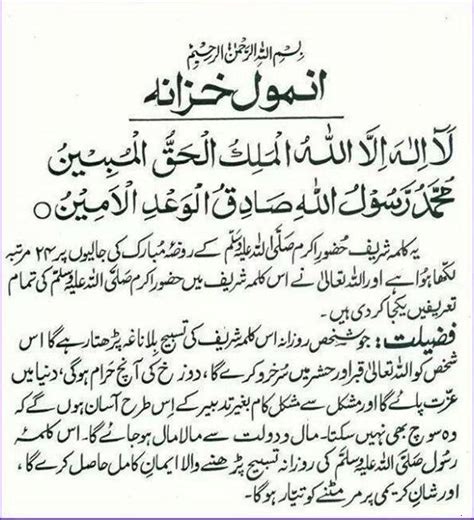 بِسْمِ اللّٰہِ الرَّحْمٰنِ الرَّحِیْمِ
انمول خزانہ
لَآ اِلٰہَ اِلَّا اللّٰہُ الْمَلِکُ الْحَقُّ الْمُبِیْنُ
مُحَمَّدٌ رَّسُوْلُ اللّٰہِ صَادِقُ الْوَعْدِ الْاَمِیْنُ ○
یہ کلمہ شریف حضورِ اکرم صلّی اللہ علیہ وسلّم کے روضۂ مبارک کی جالیوں پر ۲۴ مرتبہ
لکھا ہوا ہے اور اللہ تعالیٰ نے اس کلمہ شریف میں حضورِ اکرم صلّی اللہ علیہ وسلّم کی تمام
تعریفیں یکجا کر دی ہیں۔
فضیلت: جو شخص روزانہ اس کلمہ شریف کی تسبیح بلا ناغہ پڑھتا رہے گا اس
شخص کو اللہ تعالیٰ قبر اور حشر میں سُرخرو کرے گا، دوزخ کی آنچ حرام ہوگی، دنیا میں
عزّت پائے گا اور مشکل سے مشکل کام بغیر تدبیر کے اِس طرح آسان ہوں گے کہ
وہ سوچ بھی نہیں سکتا۔ مال و دولت سے مالا مال ہو جائے گا۔ اس کلمۂ
رسول صلّی اللہ علیہ وسلّم کی روزانہ تسبیح پڑھنے والا ایمانِ کامل حاصل کرے گا،
اور شانِ کریمی پر مر مٹنے کو تیّار ہوگا۔